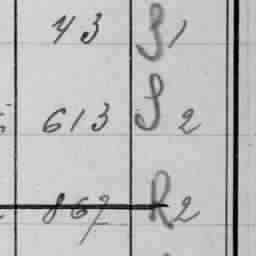 43 S1
613 S2
867 R2